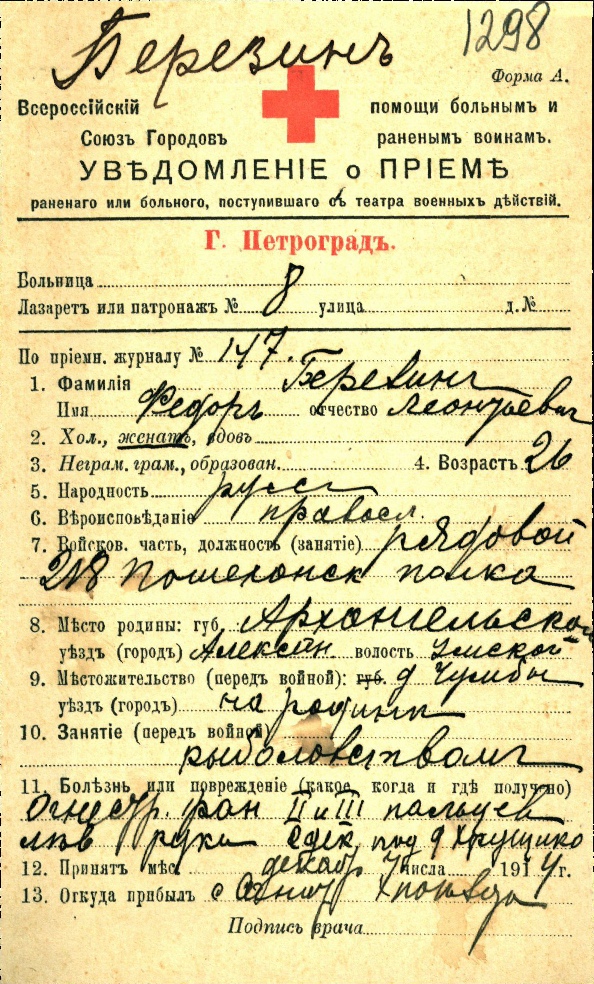 Березинъ 1298
Форма А.
Всероссійскій помощи больнымъ и
Союзъ Городовъ раненымъ воинамъ.
УВѢДОМЛЕНІЕ о ПРІЕМѢ
раненаго или больного, поступившаго съ театра военныхъ дѣйствій.
Г. Петроградъ.
Больница
Лазаретъ или патронажъ № 8 улица д.№
По пріемн. журналу № 147.
1. Фамилія Березинъ
Имя Федоръ отчество Леонтьевич
2. Хол., женатъ, вдовъ
3. Неграм. грам., образован. 4. Возрастъ 26
5. Народность русс
6. Вѣроисповѣданіе правосл.
7. Войсков. часть, должность (занятіе) рядовой
218 Пошехонск полка
8. Мѣсто родины: губ. Архангельской
уѣздъ (городъ) Алексан. волость Умской
9. Мѣстожительство (передъ войной): губ. д
уѣздъ (городъ) на родинѣ
10. Занятіе (передъ войной)
рыболовствомъ
11. Болѣзнь или поврежденіе (какое, когда и гдѣ получено)
Огнестр. ран II и III пальцев
лѣв руки дек. под д
12. Принятъ мѣс. декабр 7 числа 1914 г.
13. Откуда прибылъ с поѣзда
Подпись врача